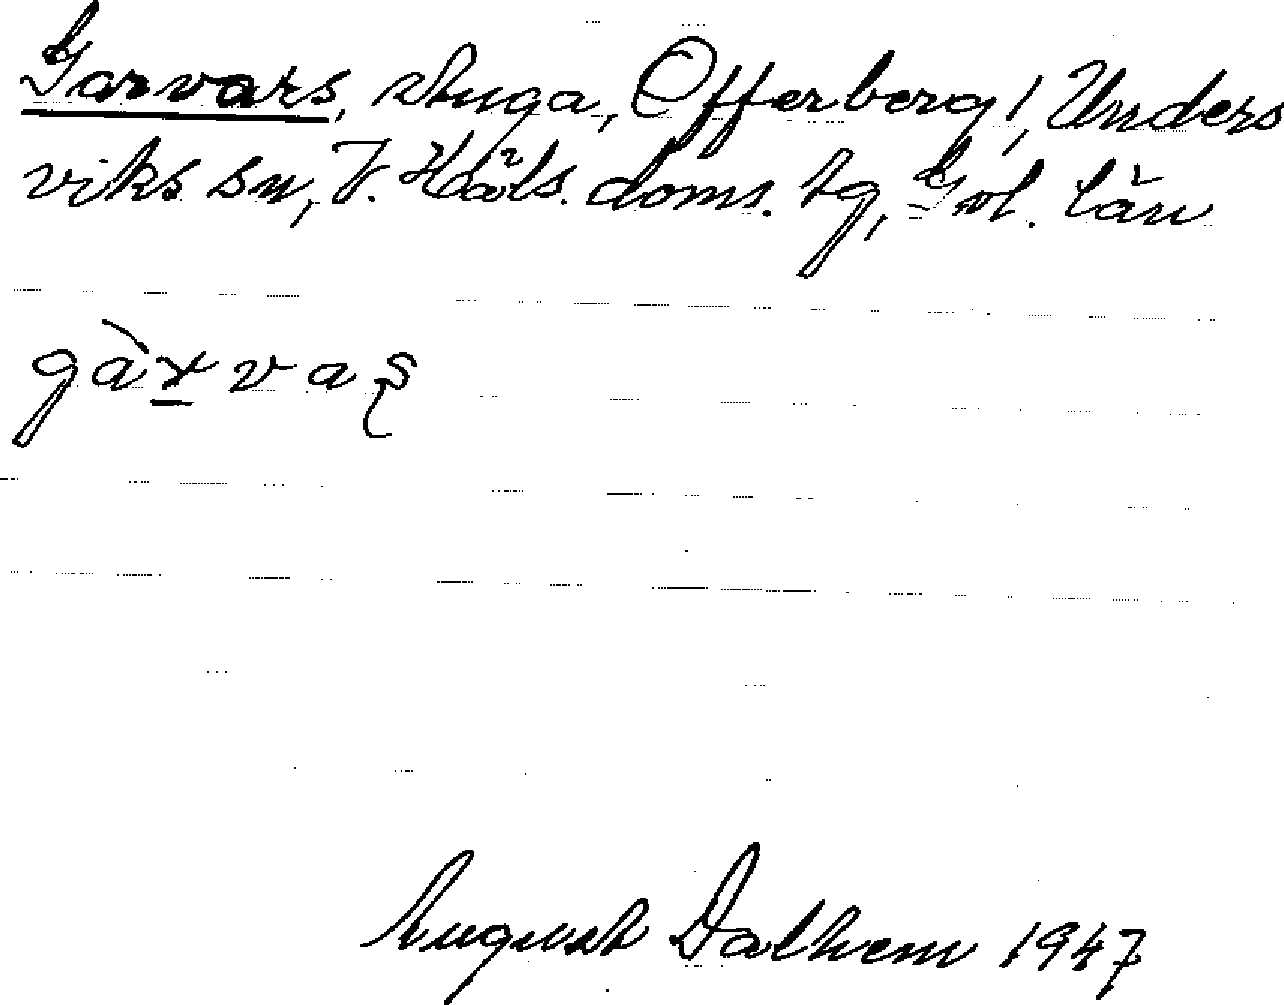 Garvars, stuga, Offerberg 1, Unders
viks sn, V. Häls. doms. tg, Gvl. län
gàrvaş
August Dalhem 1947